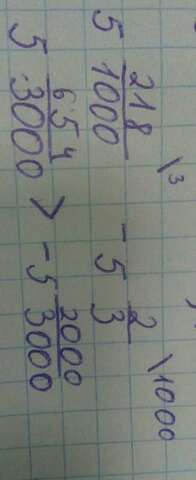 5 218/1000 \3 - 5 2/3 \1000
5 654/3000 > - 5 2000/3000